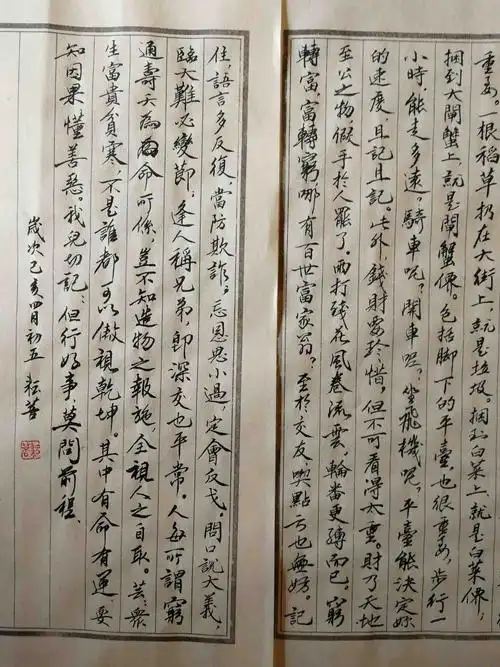 重要，一根稻草扔在大街上，就是垃圾。捆到白菜上，就是白菜價，
捆到大閘蟹上，就是閘蟹價。包括腳下的平臺，也很重要，步行一
小時，能走多遠，騎車呢？開車呢？坐飛機呢？平臺能決定妳
的速度，且記且記。此外，錢財要珍惜，但不可看得太重。財乃天地
至公之物，假手於人罷了。雨打殘花風卷流雲，輪番更轉而已。窮
轉富富轉窮哪有百世富家翁？至於交友喫點亏也無妨。記
住，語言多反復，當防欺詐。忘恩思小過，定會反戈。開口説大義，
臨大難必變節，逢人稱兄弟，即深交也平常。人每所謂窮
通壽夭為命所係，豈不知造物之報施，全視人之自取。芸芸眾
生富貴貧寒，不是誰都可以傲視乾坤。其中有命有運，要
知因果懂善惡。我兒切記：但行好事，莫問前程。
歲次己亥四月初五 耘善